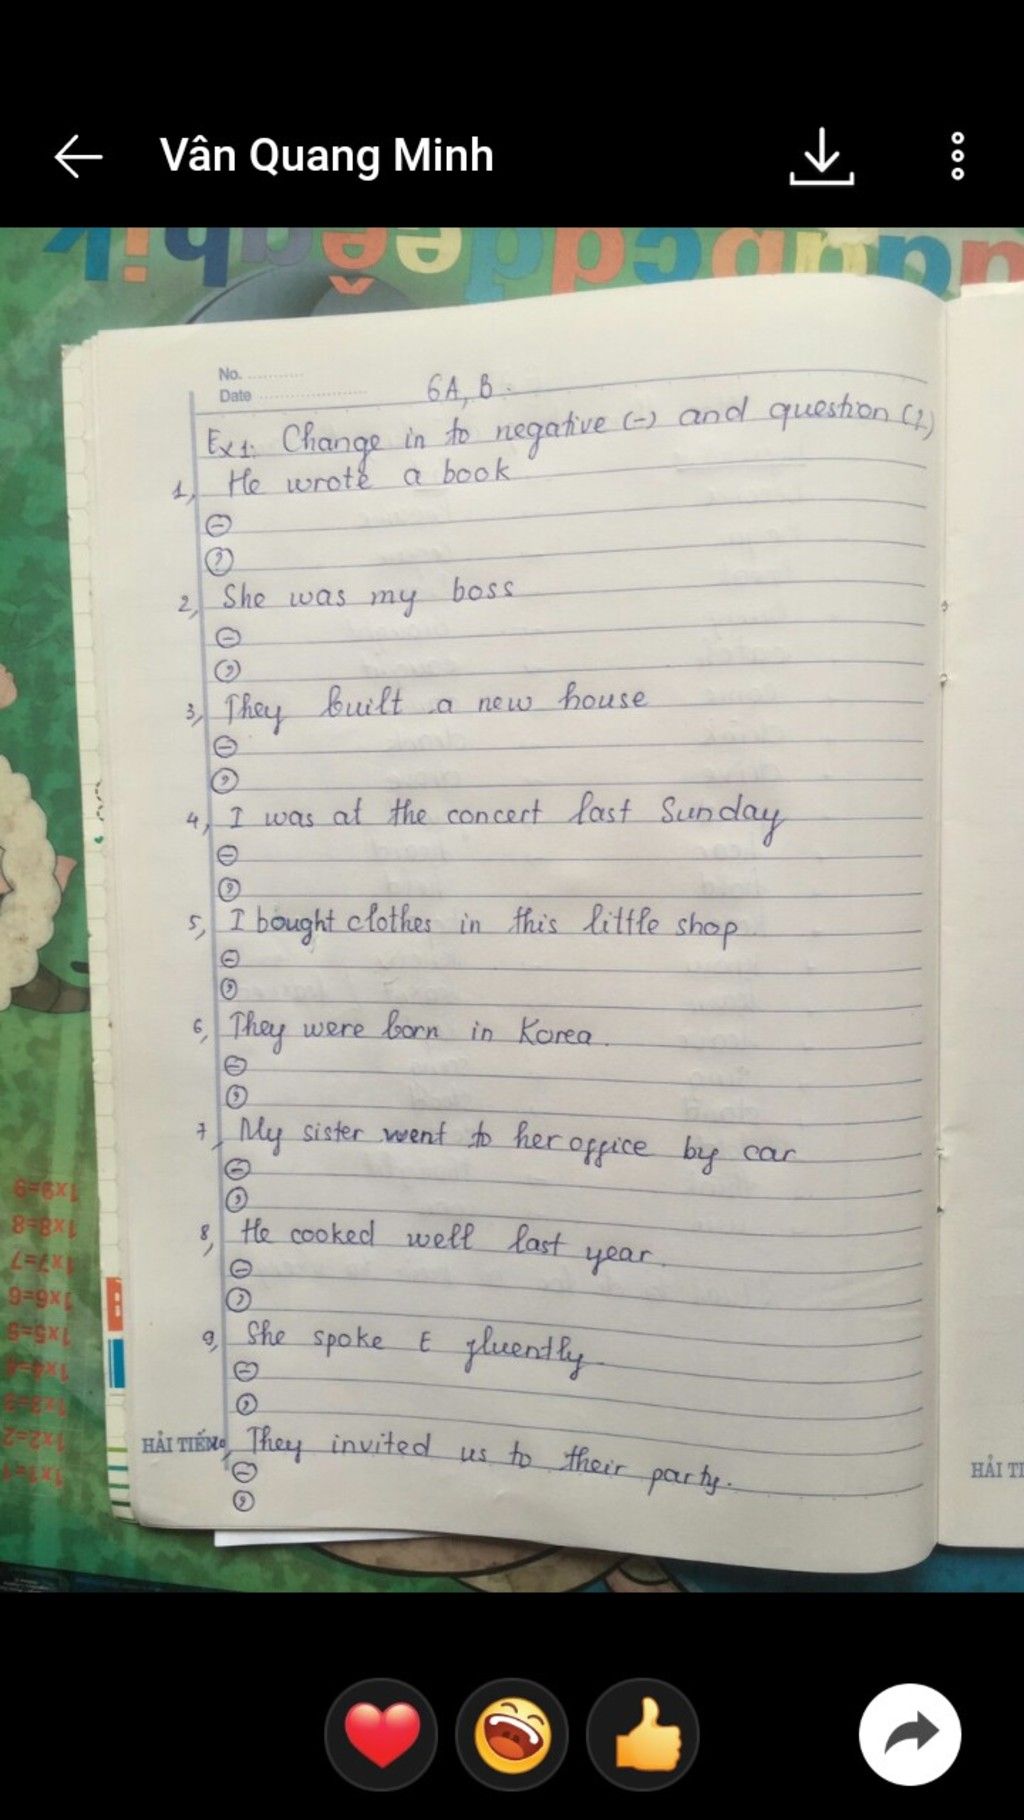 Vân Quang Minh
No. ...........
Date .....................
6A, B.
Ex1: Change in to negative (-) and question (?)
1, He wrote a book
(-)
(?)
2, She was my boss
(-)
(?)
3, They built a new house
(-)
(?)
4, I was at the concert last Sunday
(-)
(?)
5, I bought clothes in this little shop
(-)
(?)
6, They were born in Korea.
(-)
(?)
7, My sister went to her office by car
(-)
(?)
8, He cooked well last year.
(-)
(?)
9, She spoke E fluently
(-)
(?)
10, They invited us to their party.
(-)
(?)
HẢI TIẾN
HẢI TI
1x9=9
1x8=8
1x7=7
1x6=6
1x5=5
1x4=4
1x3=3
1x2=2
1x1=1